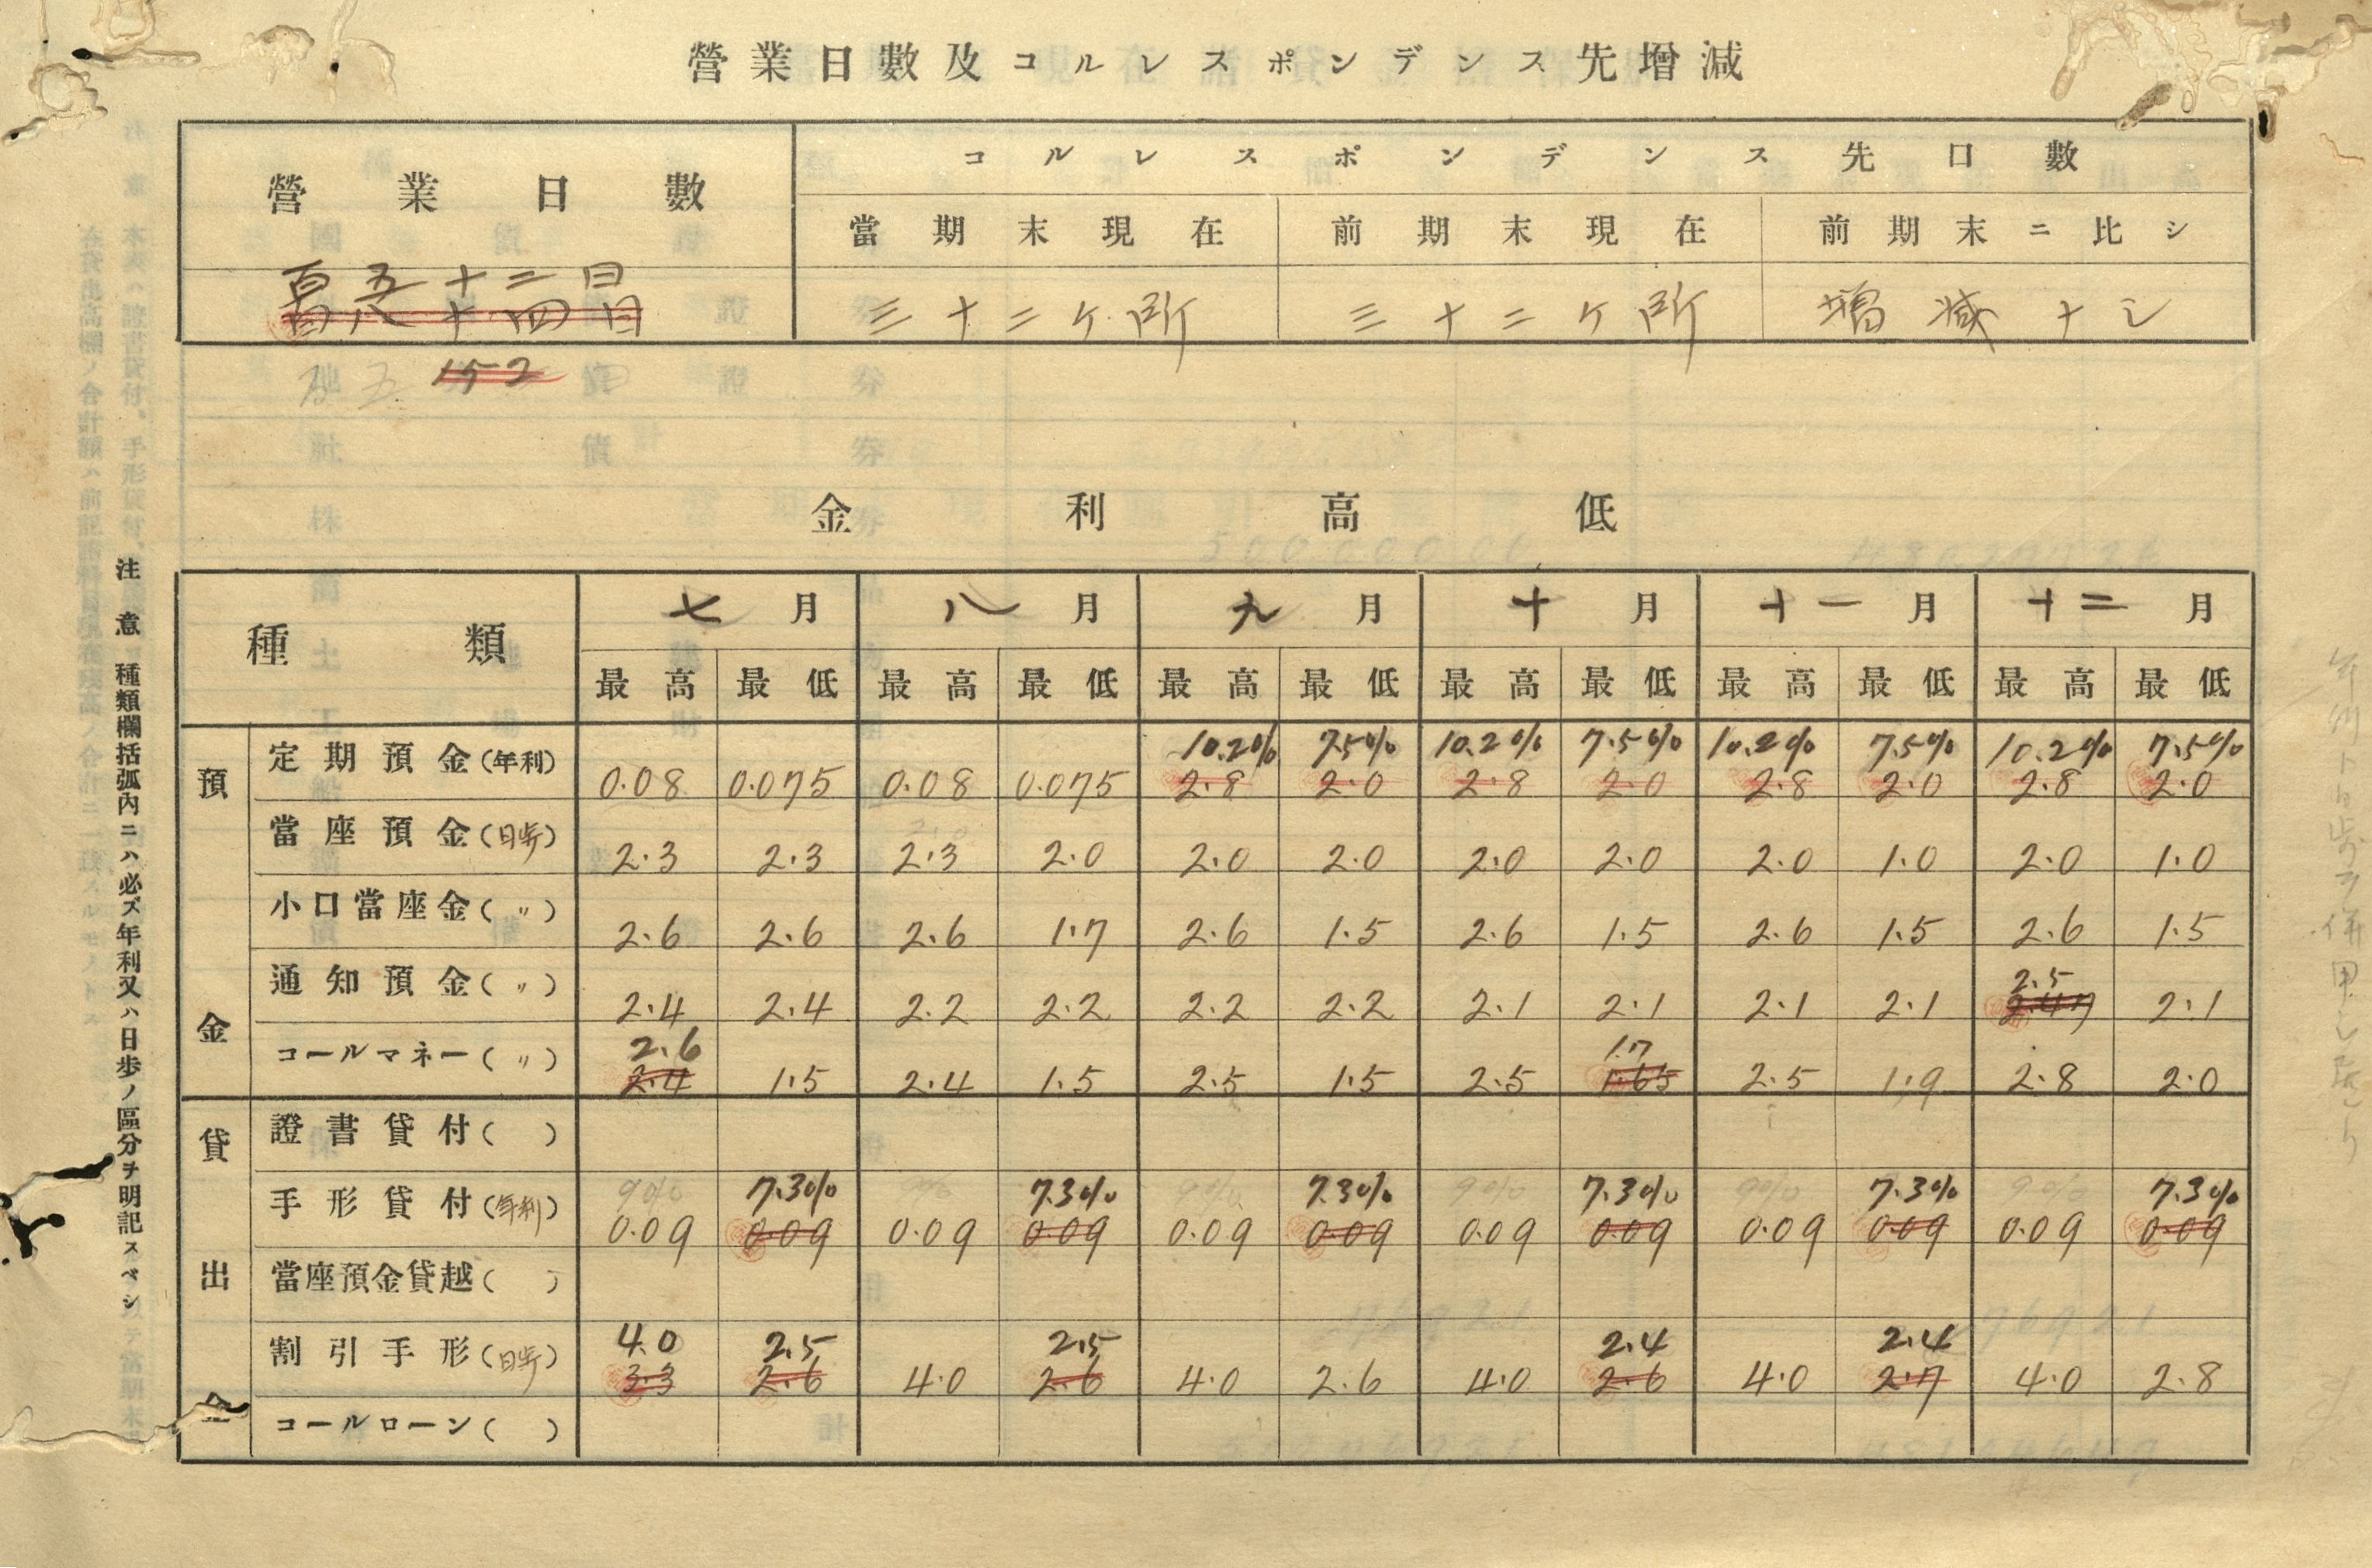 營業日數及コルレスポンデンス先增減
營業日數 コルレスポンデンス先口數
當期末現在 前期末現在 前期末ニ比シ
百五十二日
三十二ケ所 三十二ケ所 增減ナシ
152
金利高低
種類 七月 八月 九月 十月 十一月 十二月
最高 最低 最高 最低 最高 最低 最高 最低 最高 最低 最高 最低
預金
10.2% 7.5% 10.2% 7.5% 10.2% 7.5% 10.2% 7.5%
定期預金(年利) 0.08 0.075 0.08 0.075 2.8 2.0 2.8 2.0 2.8 2.0 2.8 2.0
當座預金(日歩) 2.3 2.3 2.3 2.0 2.0 2.0 2.0 2.0 2.0 1.0 2.0 1.0
小口當座金(〃) 2.6 2.6 2.6 1.7 2.6 1.5 2.6 1.5 2.6 1.5 2.6 1.5
2.5
通知預金(〃) 2.4 2.4 2.2 2.2 2.2 2.2 2.1 2.1 2.1 2.1 2.47 2.1
2.6 1.7
コールマネー(〃) 2.4 1.5 2.4 1.5 2.5 1.5 2.5 1.65 2.5 1.9 2.8 2.0
貸出金
證書貸付( )
9% 7.3% 7.3% 9% 7.3% 9% 7.3% 9% 7.3% 9% 7.3%
手形貸付(年利) 0.09 0.09 0.09 0.09 0.09 0.09 0.09 0.09 0.09 0.09 0.09 0.09
當座預金貸越( )
4.0 2.5 2.5 2.4 2.4
割引手形(日歩) 3.3 2.6 4.0 2.6 4.0 2.6 4.0 2.6 4.0 2.7 4.0 2.8
コールローン( )
注意 種類欄括弧內ニハ必ズ年利又ハ日歩ノ區分ヲ明記スベシ